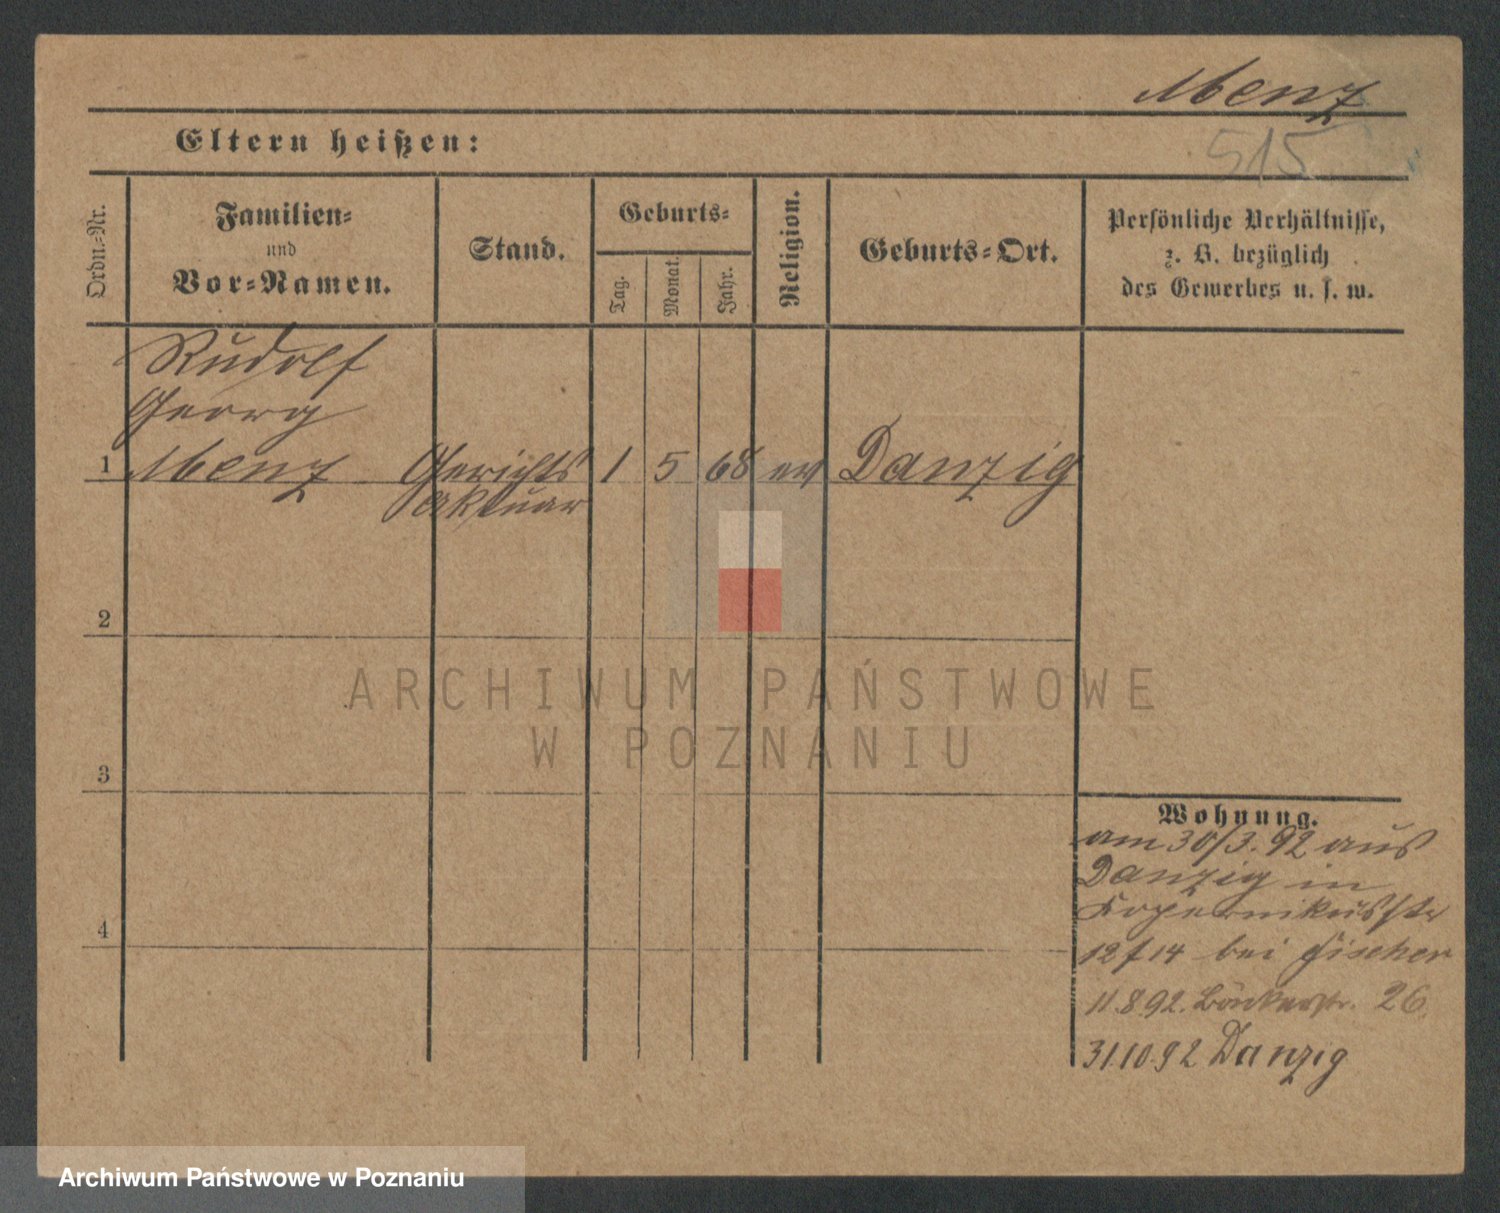 Menz
515
Eltern heißen:
Ordn.=Nr.
Familien=
und
Vor=Namen.
Stand.
Geburts=
Tag.
Monat.
Jahr.
Religion.
Geburts=Ort.
Persönliche Verhältnisse,
z. B. bezüglich
des Gewerbes u. s. w.
Rudolf
Georg
1 Menz Gerichts 1 5 68 ev Danzig
aktuar
2
3
4
Wohnung.
am 30/3. 92 aus
Danzig in
Kopernikusstr
12/14 bei Fischer
11.8.92. Bäckerstr. 26.
31.10.92 Danzig
ARCHIWUM PAŃSTWOWE
W POZNANIU
Archiwum Państwowe w Poznaniu